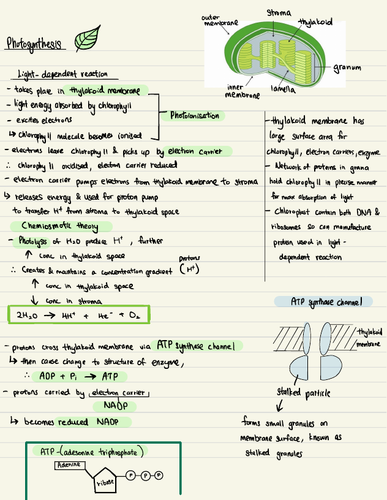 Photosynthesis
outer membrane
stroma
thylakoid
granum
lamella
inner membrane
Light-dependent reaction
- takes place in thylakoid membrane
- light energy absorbed by chlorophyll
- excites electrons
↳ chlorophyll molecule becomes ionised
Photoionisation
- electrons leave chlorophyll & picks up by electron carrier
∴ chlorophyll oxidised, electron carrier reduced
- electron carrier pumps electrons from thylakoid membrane to stroma
↳ releases energy & used for proton pump
to transfer H⁺ from stroma to thylakoid space
Chemiosmotic theory
- Photolysis of H₂O produce H⁺, further
↑ conc in thylakoid space
∴ Creates & maintains a concentration gradient (H⁺)
protons
↑ conc in thylakoid space
↓ conc in stroma
2H₂O → 4H⁺ + 4e⁻ + O₂
- protons cross thylakoid membrane via ATP synthase channel
↳ then cause change to structure of enzyme,
∴ ADP + Pi → ATP
- protons carried by electron carrier
NADP
↳ becomes reduced NADP
ATP - (adesonine triphosphate)
Adenine
ribose
P
P
P
- thylakoid membrane has
large surface area for
chlorophyll, electron carriers, enzyme
- Network of proteins in grana
hold chlorophyll in precise manner
for more absorption of light
- Chloroplast contain both DNA &
ribosomes so can manufacture
protein used in light-
dependent reaction
ATP synthase channel
thylakoid membrane
stalked particle
forms small granules on
membrane surface, known as
stalked granules